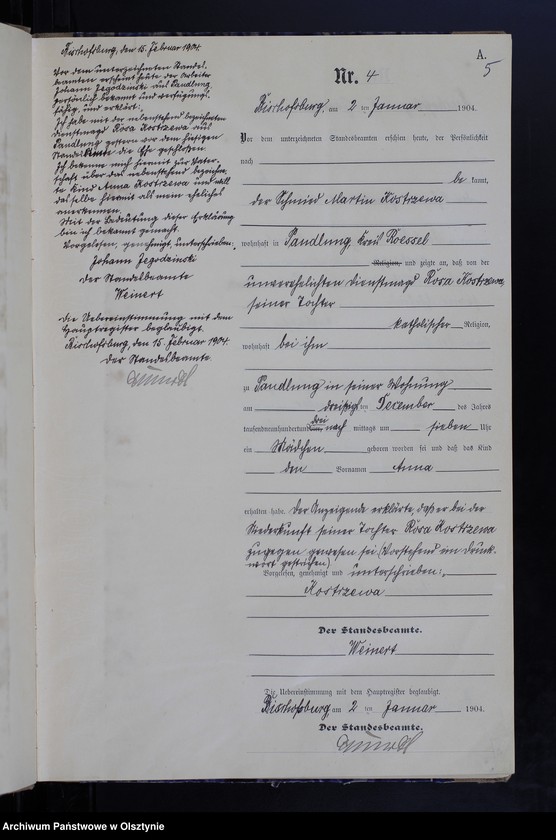 Bischofsburg, den 15. Februar 1904.
Vor dem unterzeichneten Standes-
beamten erschien heute der Arbeiter
Johann Jegodzinski aus Pandlung
persönlich bekannt und verfügungs-
fähig, und erklärt:
Ich habe mit der nebenstehend bezeichneten
Dienstmagd Rosa Kostrzewa aus
Pandlung gestern vor dem hiesigen
Standesamte die Ehe geschlossen.
Ich bekenne mich hiermit zur Vater-
schaft über das nebenstehend bezeichne-
te Kind Anna Kostrzewa und will
dasselbe hiermit als mein eheliches
anerkennen.
Mit der Bedeutung dieser Erklärung
bin ich bekannt gemacht.
Vorgelesen, genehmigt, unterschrieben.
Johann Jegodzinski
Der Standesbeamte
Weinert
Die Uebereinstimmung mit dem
Hauptregister beglaubigt.
Bischofsburg, den 15. Februar 1904.
Der Standesbeamte
A.
5
Nr. 4
Bischofsburg am 2 ten Januar 1904.
Vor dem unterzeichneten Standesbeamten erschien heute, der Persönlichkeit
nach
be kannt,
der Schmied Martin Kostrzewa
wohnhaft in Pandlung Kreis Roessel
Religion, und zeigte an, daß von der
unverehelichten Dienstmagd Rosa Kostrzewa,
seiner Tochter
katholischer Religion,
wohnhaft bei ihm
zu Pandlung in seiner Wohnung
am dreißigsten December des Jahres
tausendneunhundertdrei nach mittags um sieben Uhr
ein Mädchen geboren worden sei und daß das Kind
den Vornamen Anna
erhalten habe. Der Anzeigende erklärte, daß er bei der
Niederkunft seiner Tochter Rosa Kostrzewa
zugegen gewesen sei. (Vorstehend ein Druck-
wort gestrichen)
Vorgelesen, genehmigt und unterschrieben:
Kostrzewa
Der Standesbeamte.
Weinert
Die Uebereinstimmung mit dem Hauptregister beglaubigt.
Bischofsburg am 2 ten Januar 1904.
Der Standesbeamte.
Archiwum Państwowe w Olsztynie